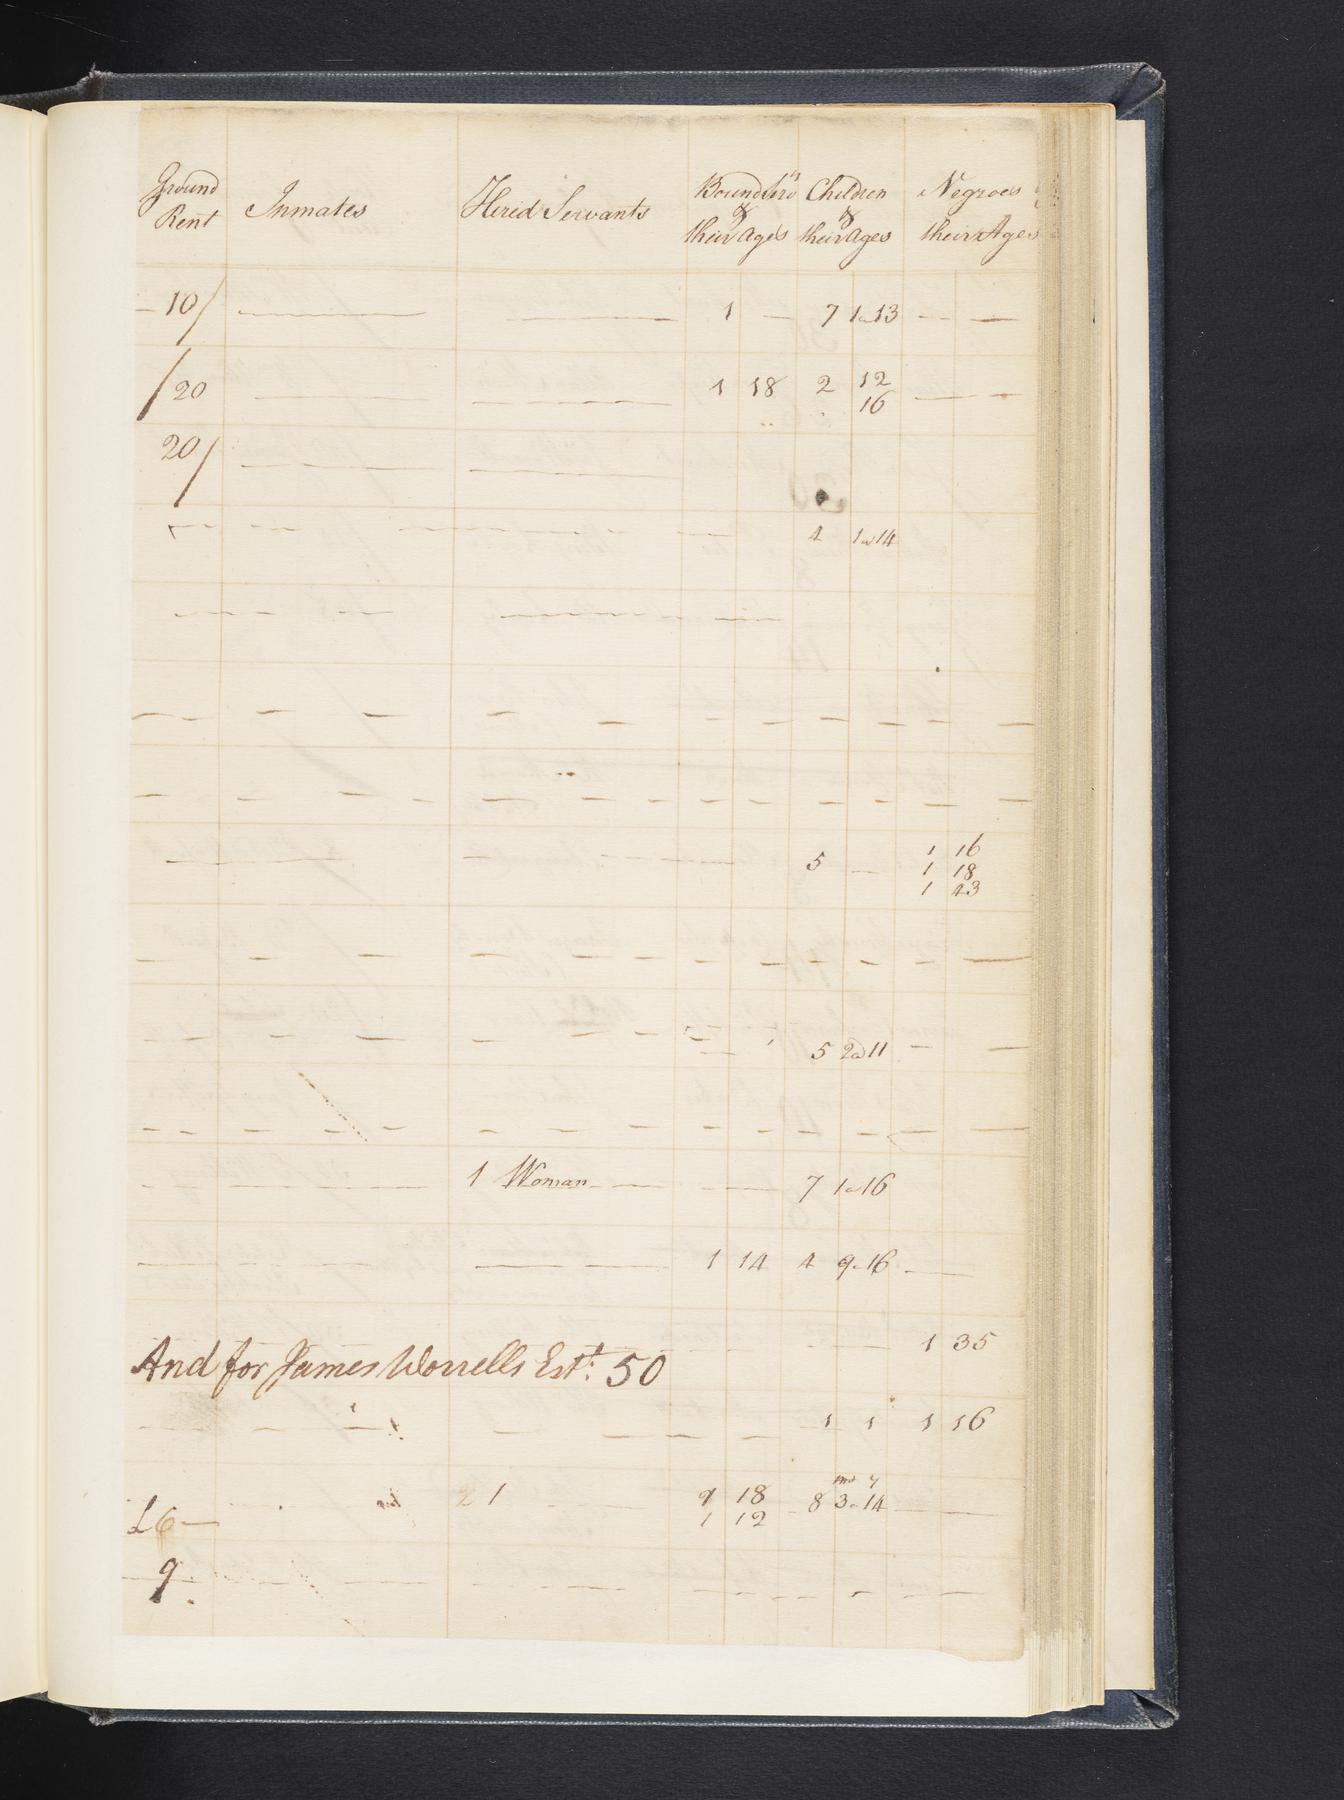 Ground Rent | Inmates | Hired Servants | Bound Servts & their Ages | Children & their Ages | Negroes their Ages
— 10/ — — 1 — 7 1 a 13 — —
/20 — — 1 18 2 12 — —
16
20/ — —
— — — 4 1 a 14
— — —
— — — — — — —
— — — — — — —
— — — 5 — 1 16
1 18
1 43
— — — — — — —
— — — 5 2 a 11 — —
— — — — — — —
— — 1 Woman — — 7 1 a 16
— — — 1 14 4 9 a 16 —
— — 1 35
And for James Worrells Estt. 50
— — — — 1 1 1 16
mo y
£6 — 1 — 18 8 3 a 14 —
1 12
9 — — — — — —